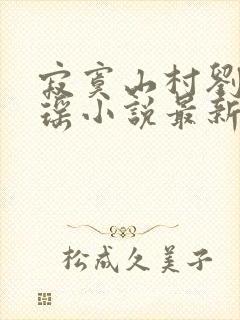 寂寞山村劉
瑤小說最新
松成久美子